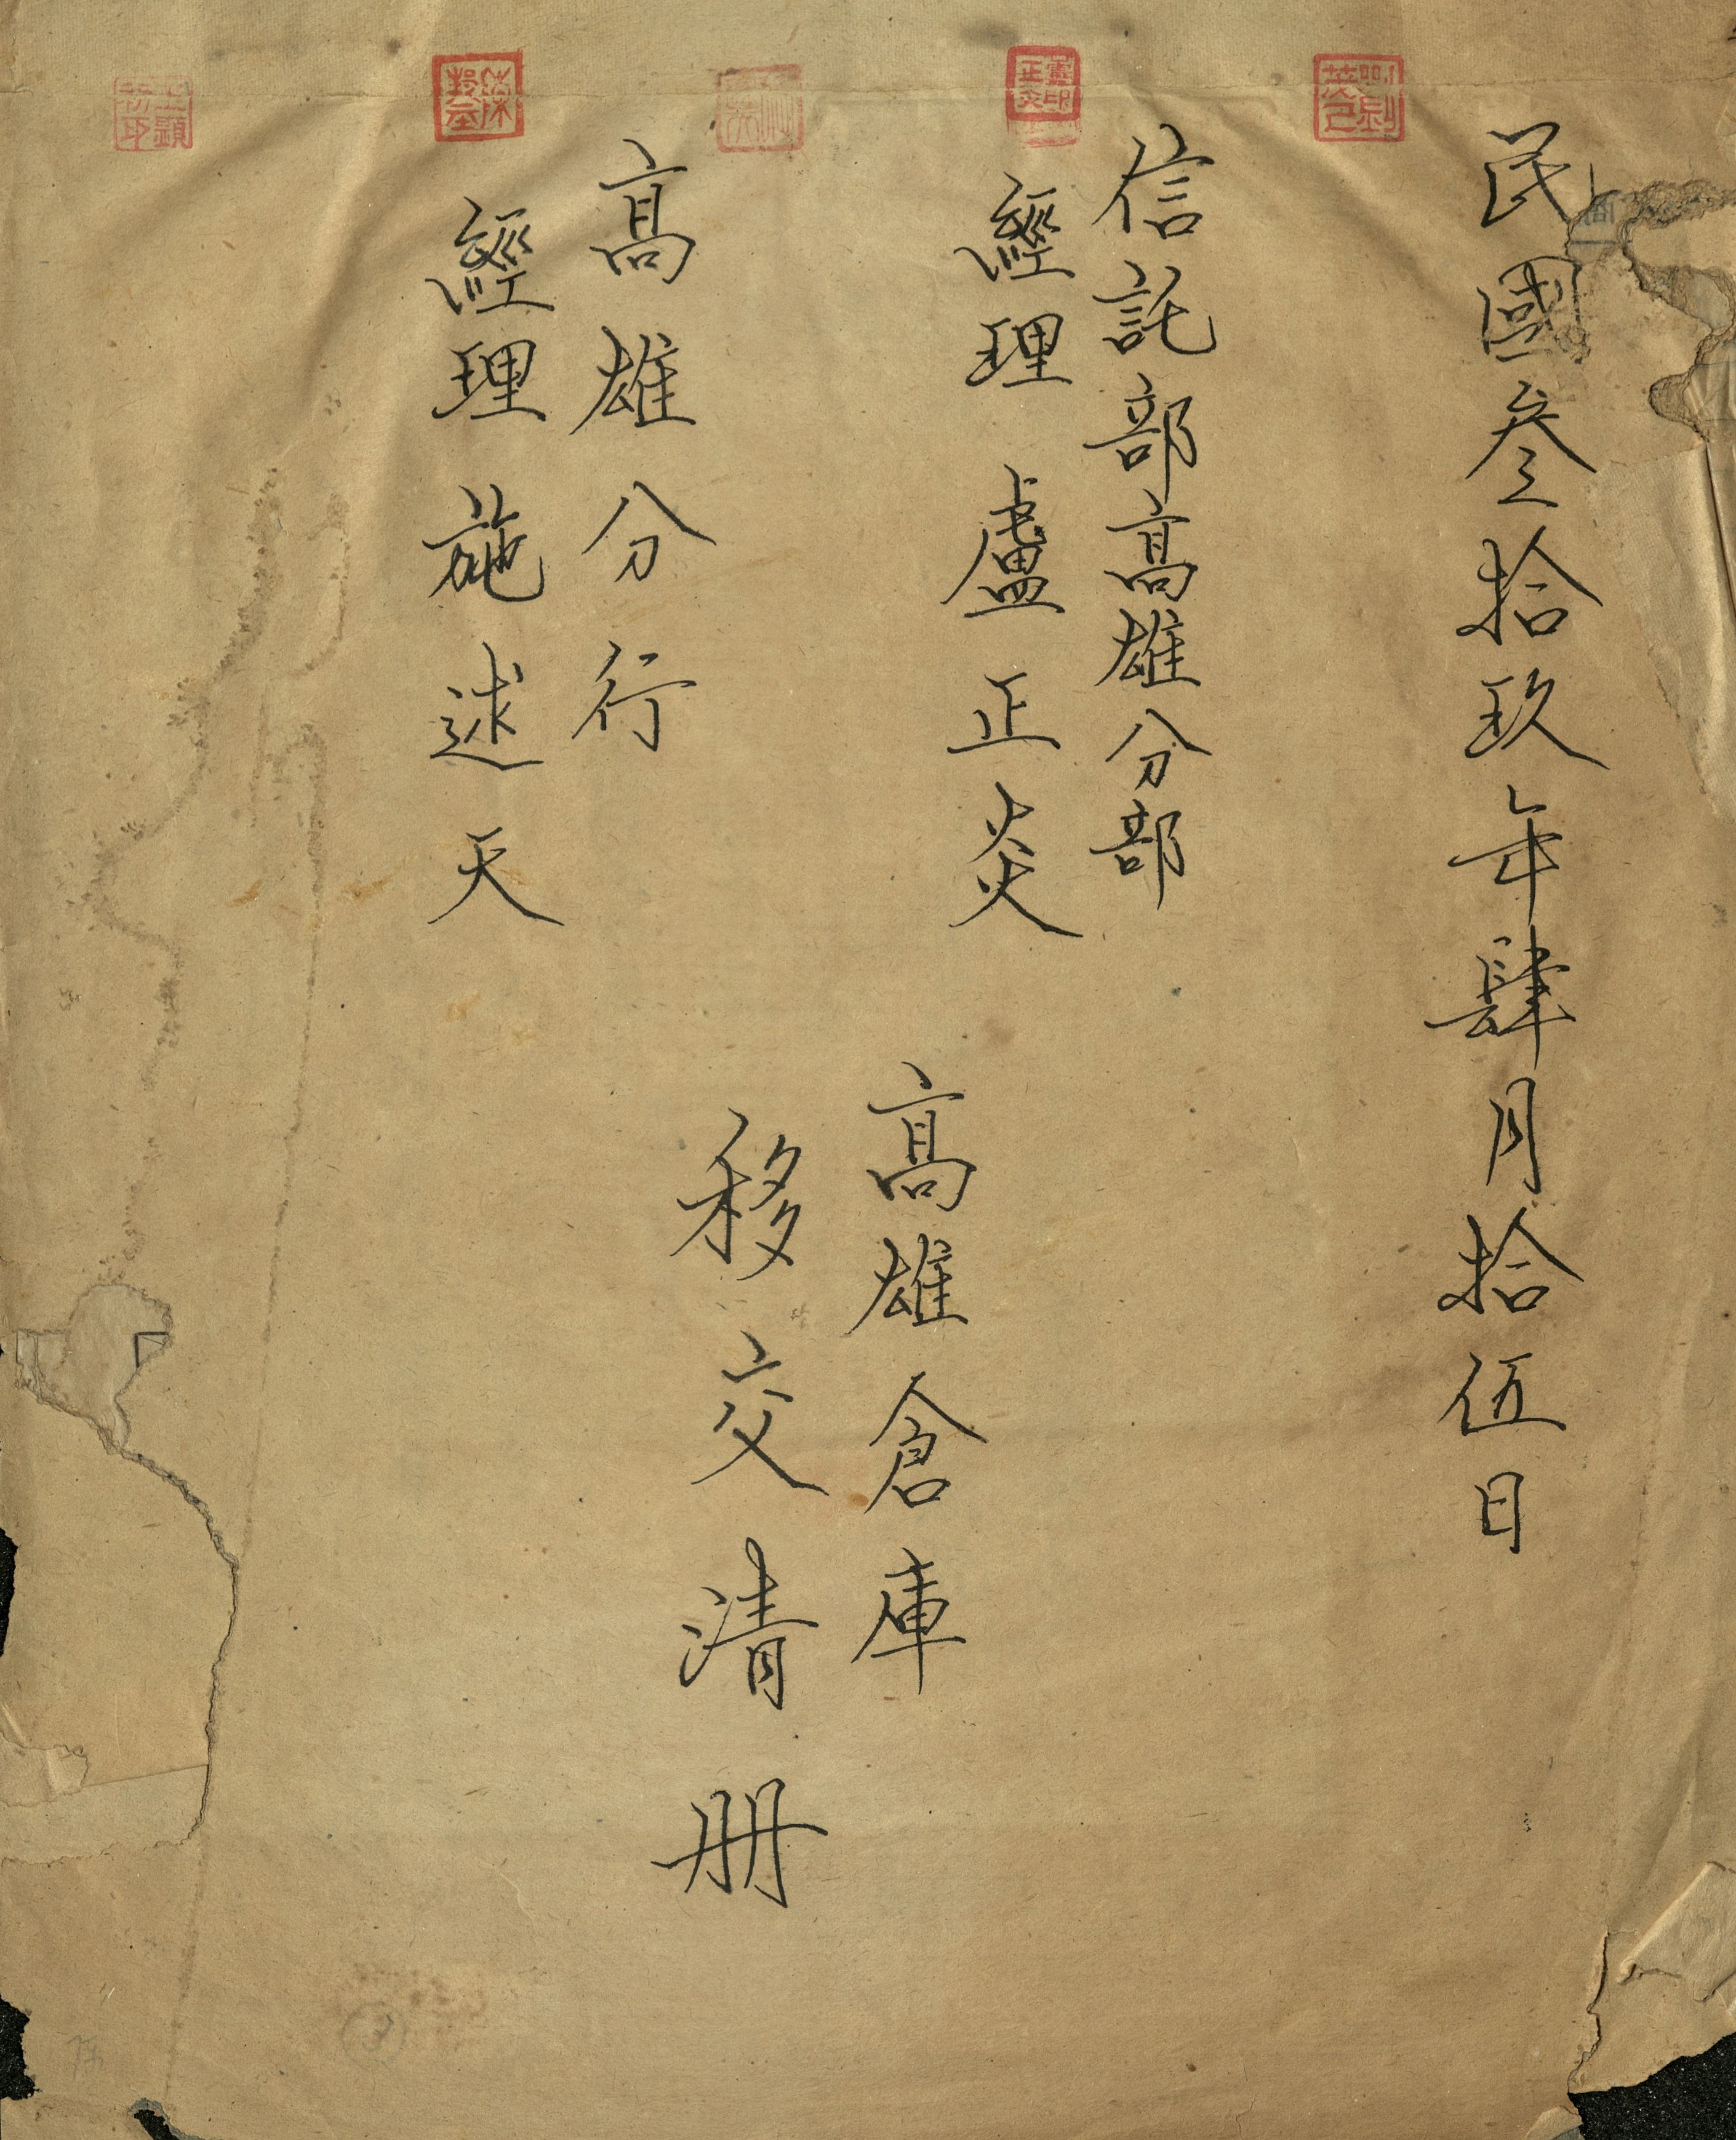 民國叁拾玖年肆月拾伍日
信託部高雄分部
經理 盧正炎
高雄倉庫
移交清册
高雄分行
經理 施述天
盧正炎印